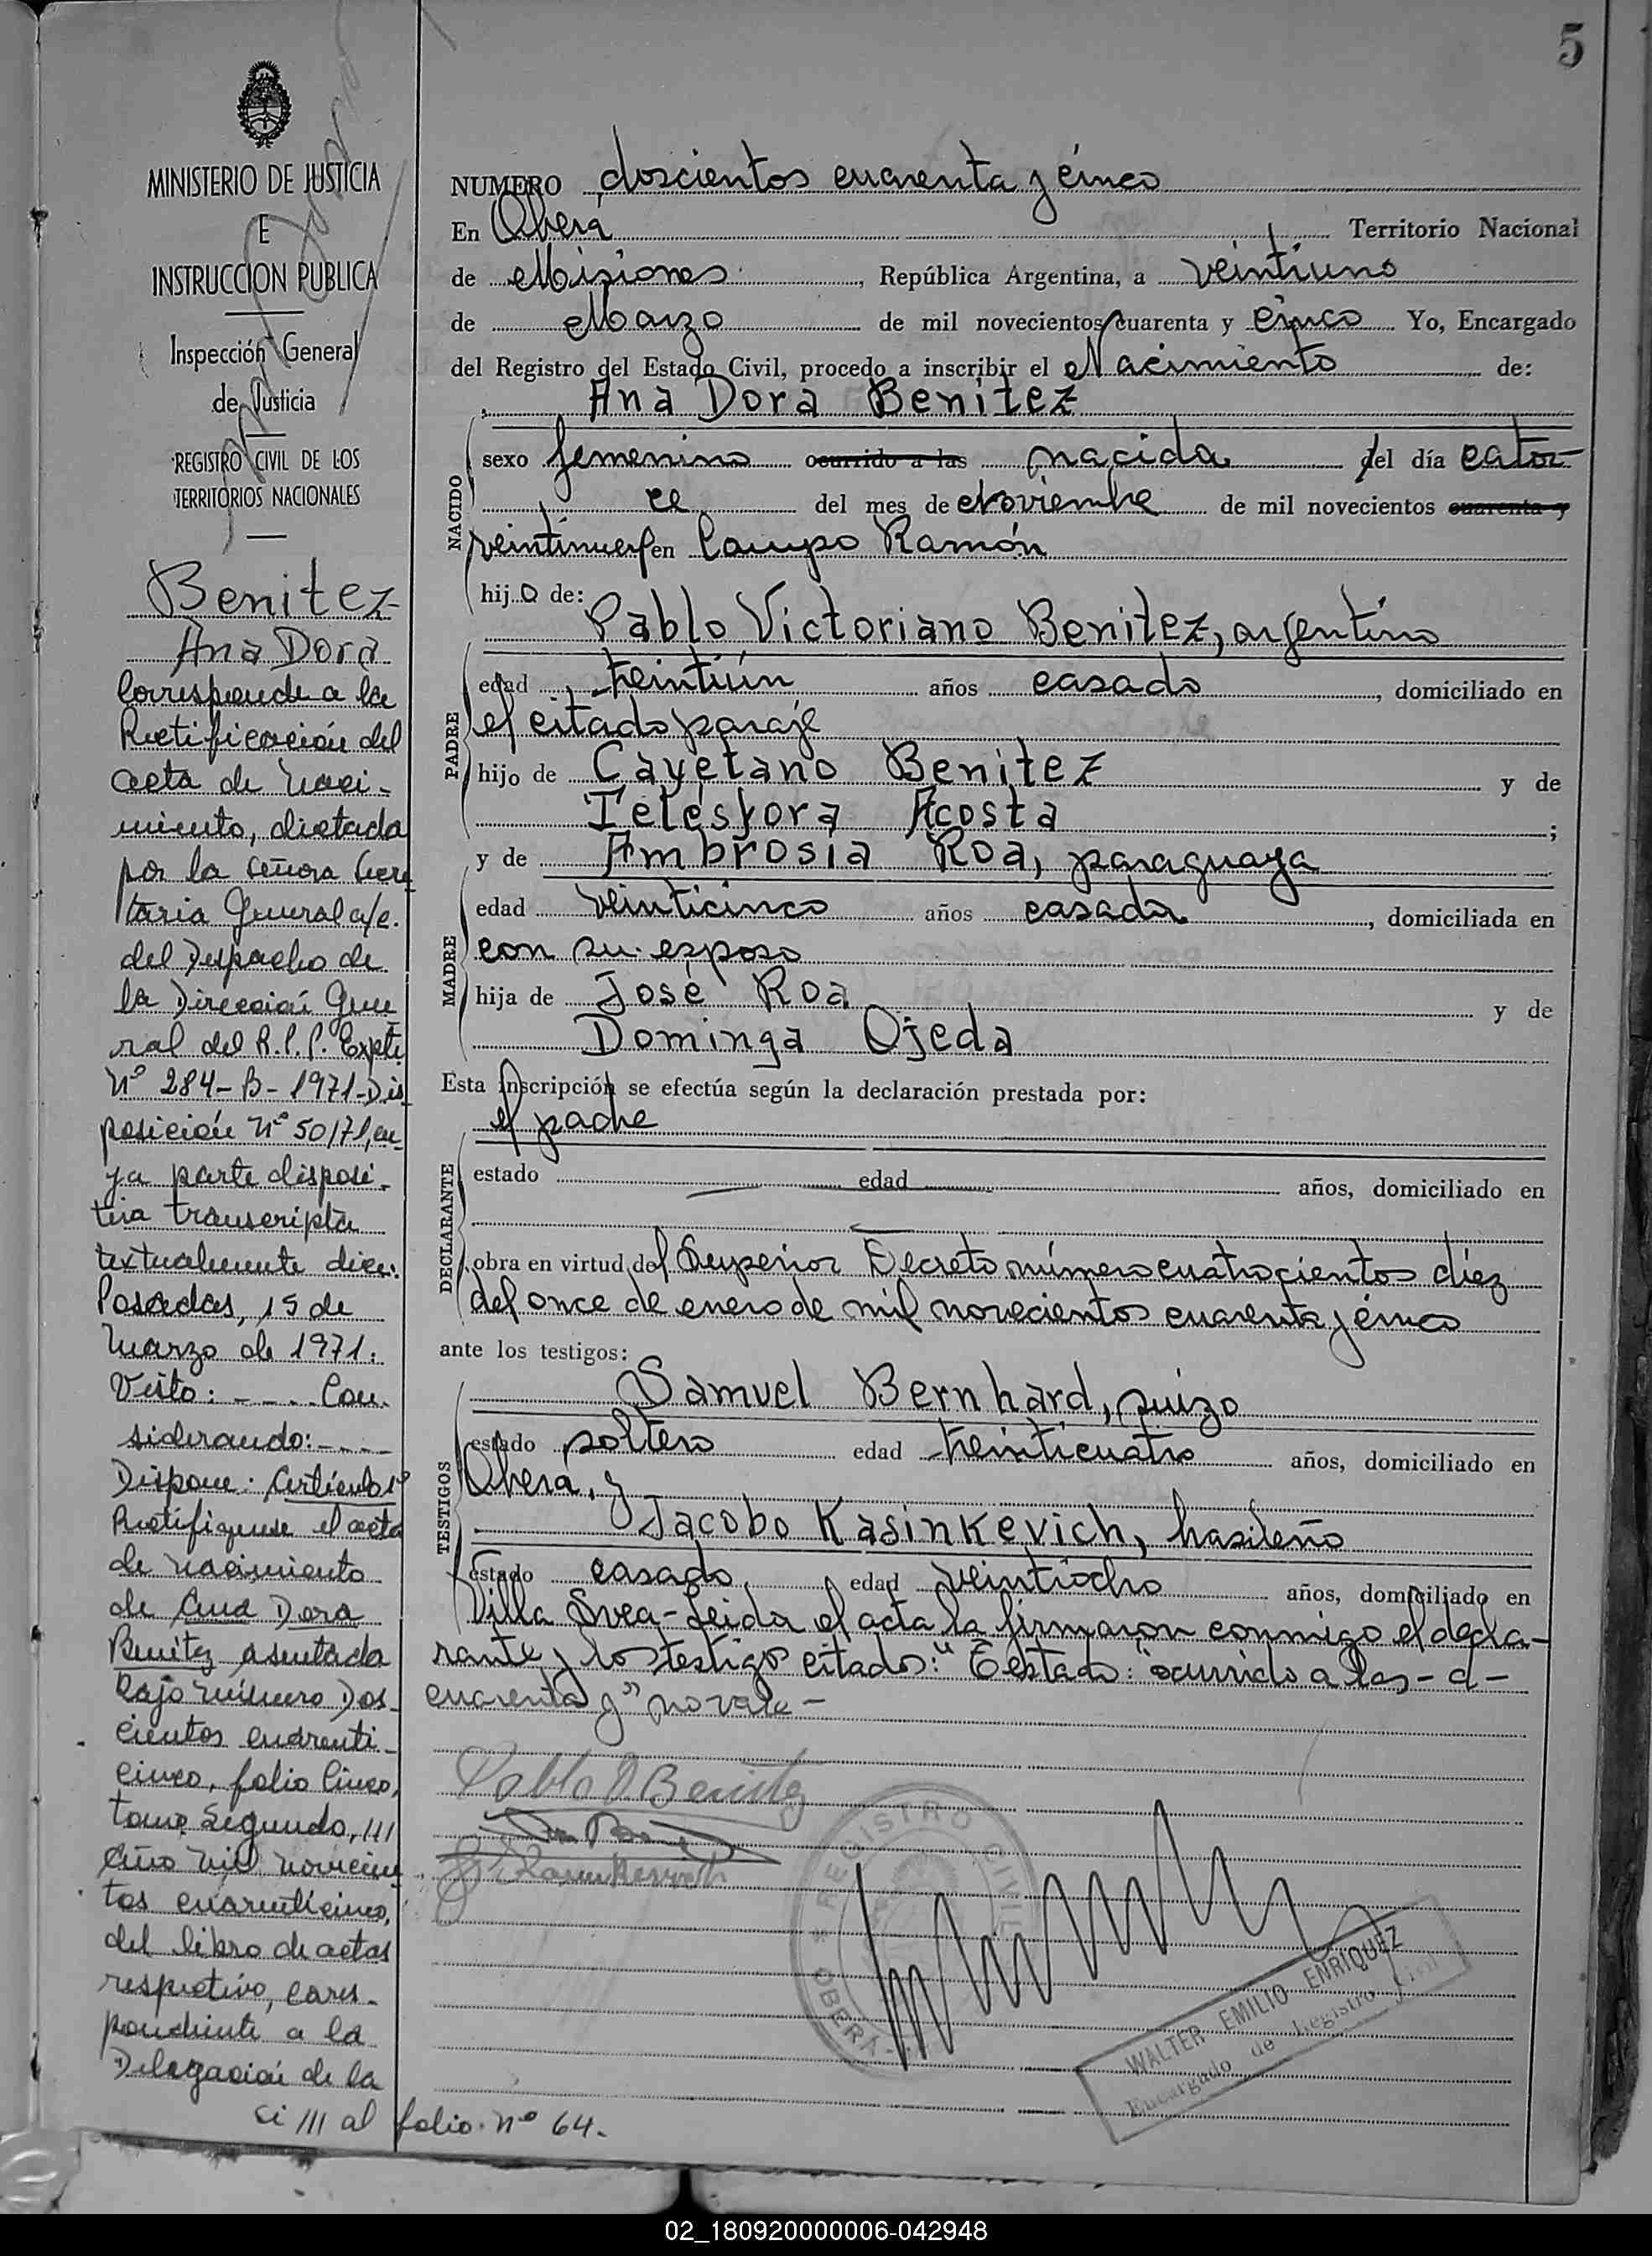 5
MINISTERIO DE JUSTICIA
E
INSTRUCCION PUBLICA
Inspección General
de Justicia
REGISTRO CIVIL DE LOS
TERRITORIOS NACIONALES
Benitez
Ana Dora
Corresponde a la
Rectificación del
acta de naci-
miento, dictada
por la señora Secre
taria General a/c.
del Despacho de
la Dirección Gene
ral del R.P.P. Expte
Nº 284-B-1971-Dis
posición Nº 50/71, cu
ya parte disposi-
tiva transcripta
textualmente dice:
Posadas, 15 de
Marzo de 1971.
Visto: - - - . Con.
siderando: - - - -
Dispone: Artículo 1º
Rectifiquese el acta
de nacimiento
de Ana Dora
Benítez asentada
bajo número Dos-
cientos cuarenti-
cinco, folio Cinco,
tomo Segundo, ///
Año mil novecien
tos cuarenticinco,
del libro de actas
respectivo, corres-
pondiente a la
Delegación de la
si /// al folio nº 64.
NUMERO doscientos cuarenta y cinco
En Oberá Territorio Nacional
de Misiones, República Argentina, a veintiuno
de Marzo de mil novecientos cuarenta y cinco Yo, Encargado
del Registro del Estado Civil, procedo a inscribir el Nacimiento de:
Ana Dora Benítez
NACIDO
sexo femenino ocurrido a las nacida del día cator-
ce del mes de Noviembre de mil novecientos cuarenta y
veintinueve en Campo Ramón
hija de:
Pablo Victoriano Benitez, argentino
PADRE
edad treintiún años casado, domiciliado en
el citado paraje
hijo de Cayetano Benitez y de
Telésfora Acosta;
y de Ambrosia Roa, paraguaya
MADRE
edad veinticinco años casada, domiciliada en
con su esposo
hija de José Roa y de
Dominga Ojeda
Esta inscripción se efectúa según la declaración prestada por:
el padre
DECLARANTE
estado edad años, domiciliado en
obra en virtud del Superior Decreto número cuatrocientos diez
del once de enero de mil novecientos cuarenta y cinco
ante los testigos:
Samuel Bernhard, suizo
TESTIGOS
estado soltero edad treinticuatro años, domiciliado en
Oberá, y
Jacobo Kasinkevich, brasileño
estado casado edad veintiocho años, domiciliado en
Villa Svea-Leida el acta la firmaron conmigo el decla-
rante y los testigos citados: "Testado: "ocurrido a las - a -
cuarenta y" no vale -
Pablo V Benitez
REGISTRO CIVIL
OBERÁ
WALTER EMILIO ENRIQUEZ
Encargado de Registro Civil
02_180920000006-042948